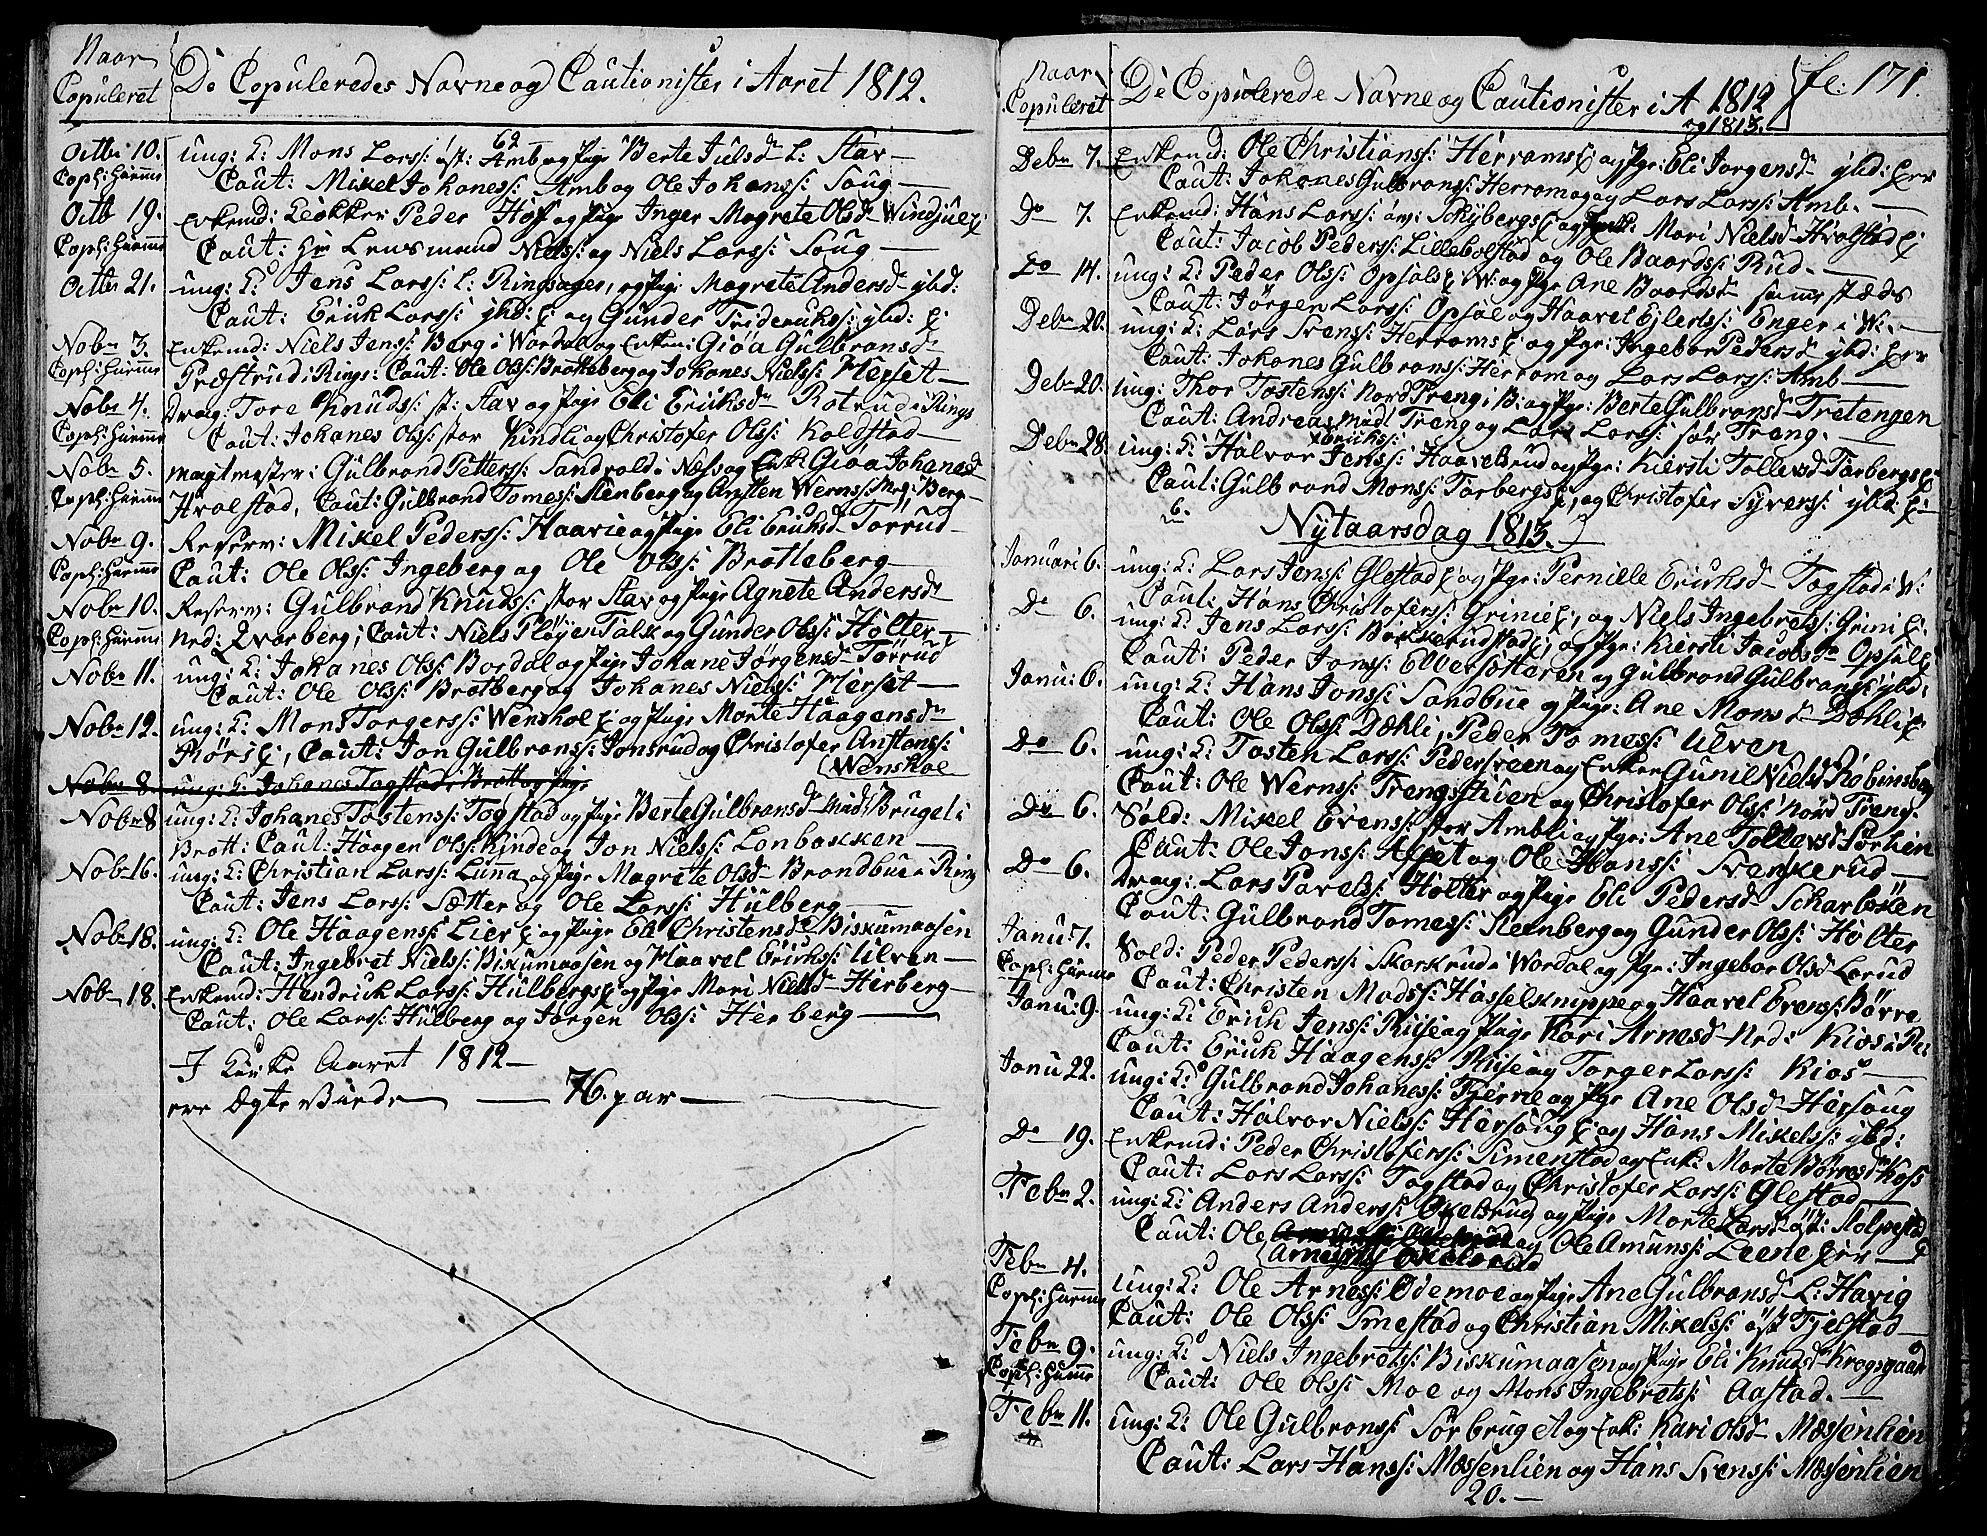 Naar
Copuleret
De Copuleredes Navne og Cautionister i Aaret 1812.
Octbr 10. ung: K: Mons Larss: øst: Amb og Pige Berte Julsdr L: Stav
Coph: Hiemme Caut: Mikel Johaness: Amb og Ole Johanss: Soug
Octb 19. Enkemd: Peder Hof og Pige Inger Magrete Olsdr Windjuel
Coph: Hiemme Caut: Hr Lensmand Niels: og Niels Larss: Soug
Octbr 21. ung: K: Jens Larss: L: Ringsager, og Pige Magrete Andersdr ibid:
Caut: Erick Larss: ibid: og Gunder Fridericks: ibid:
Nobr 3. Enkemd: Niels Jenss: Berg i Wardal og Enken: Giøa Gulbransdr
Coph: Hiemme Præstrud i Rings: Caut: Ole Olss: Brotteberg og Johanes Nielss: Merset
Nobr 4. Drag: Tore Knudss: st: Stav og Pige Eli Ericksdr Rotrud i Rings
Coph: Hiemme Caut: Johanes Olss: stor Kindli og Christofer Olss: Koldstad
Nobr 5. Magtmester: Gulbrand Petterss: Sandvold i Næs og Enk: Giøa Johanesd
Coph: Hiemme Hvalstad, Caut: Gulbrand Tomess: Stenberg og Wernss: Berg
Nobr 9. Reserv: Mikel Pederss: Haavie og Pige Eli Ericksdr Torrud
Coph: Hiemme Caut: Ole Olss: Ingeberg og Ole Olss: Brotteberg
Nobr 10. Reserv: Gulbrand Knudss: stor Stav og Pige Agnete Andersdr
Coph: Hiemme Ned: Qvarberg; Caut: Niels Pløyen Falk og Gunder Olss: Holter
Nobr 11. ung: K: Johanes Olss: Bordal og Pige Johane Jørgensdr Torrud
Caut: Ole Olss: Brotberg og Johanes Nielss: Merset
Nobr 12. ung: K: Mons Torgerss: Wenshol og Pige Marte Haagensdr
Rørs, Caut: Jon Gulbranss: Jonsrud og Christofer Anstonss:
Wenshoe
Nobr 8. ung: K: Johanes Togstad i Brott og Pige
Nobr 8 ung: K: Johanes Tostenss: Togstad og Pige Berte Gulbransdr Brugeli
Brott: Caut: Haagen Olss: Kinde og Jon Nielss: Lonbakken
Nobr 16. ung: K: Christian Larss: Lunna og Pige Magrete Olsdr Brandbue i Ring
Caut: Jens Larss: Sætter og Ole Larss: Hulberg
Nobr 18. ung: K: Ole Haagenss: Lier og Pige Eli Christensdr Biskumaasen
Caut: Ingebret Nielss: Biskumaasen og Haavel Erickss: Ulven
Nobr 18. Enkemd: Hendrick Larss: Hulberg og Pige Mari Nielsdr Herberg
Caut: Ole Larss: Hulberg og Jørgen Olss: Herberg
I Kirke Aaret 1812
ere Ægte Viede 76. par
Naar
Copuleret
De Copulerede Navne og Cautionister i A 1812
og 1813.
fl: 171.
Debr 7. Enkemd: Ole Christianss: Herrom og Pge: Eli Jørgensdr ibid:
Caut: Johanes Gulbranss: Herrom og Lars Larss: Amb.
Do 7. Enkemd: Hans Larss: Skyberg og Mari Nielsd Hvalstad
Caut: Jacob Pederss: Lillebolstad og Ole Baardss: Rud.
Do 14. ung: K: Peder Olss: Opsal og Pge Ane Baardsdr sammestæds
Caut: Jørgen Larss: Opsal og Haavel Ejlertss: Enger i W:
Debr 20. ung: K: Lars Svenss: Herrom og Pge: Ingebor Pedersdr ibid:
Caut: Johanes Gulbranss: Herrom og Lars Larss: Amb
Debr 20. ung: Thor Tostenss: Nord Træng i B: og Pge: Berte Gulbransdr Tretengen
Caut: Andreas Træng og Lars Larss: sør Træng.
Debr 28. ung: K: Halvor Jenss: Haavelsrud og Pge: Kiersti Tollevsdr Torberg
Caut: Gulbrand Monss: Torberg, og Christofer Syverss: ibid:
Nytaarsdag 1813.
Januari 6. ung: K: Lars Jenss: Glestad og Pge: Pernille Ericksdr Togstad i W:
Caut: Hans Christoferss: Grinie, og Niels Ingebretss: Grini
Do 6. ung: K: Jens Larss: Birkerudstad og Pge: Kiersti Jacobsdr Opsal
Caut: Peder Jonss: Elversætteren og Gulbrand Gulbranss: ibid:
Janu: 6. ung: K: Hans Jonss: Sandbue og Pge: Ane Monsdr Dæhli
Caut: Ole Olss: Dæhli, Peder Tomess: Ulven
Do 6. ung: K: Tosten Larss: Pedersveen og Enken Gunil Nielsd Robinsberg
Caut: Ole Wernss: Trengstuen og Christofer Olss: Nord Treng.
Do 6. Sold: Mikel Evenss: stor Ambli og Pge: Ane Tollevsd Sørlien
Caut: Ole Jonss: Alset og Ole Hanss: Svenkerud
Do 6. Drag: Lars Pavelss: Holter og Pige Eli Pedersdr Scharbøen
Caut: Gulbrand Tomess: Stenberg og Gunder Olss: Holter
Janu: 7. Sold: Peder Pederss: Skarkrud i Wardal og Pge: Ingebor Olsd Lørud
Coph: Hiemme Caut: Christen Madss: Hasselknippe og Haavel Evenss: Børre
Janu: 9. ung: K: Erich Jenss: Riise og Pige Kari Arnesdr Ned: Kios i Ri:
Caut: Erick Haagenss: Riise og Torger Larss: Kios
Janu 22. ung: K: Gulbrand Johaness: Tjerne og Pge Ane Olsdr Hersoug
Caut: Halvor Nielss: Hersoug og Hans Mikelss: ibd:
Do 19. Enkemd: Peder Christoferss: Simenstad og Enk: Marte Børresdr Koss
Caut: Lars Larss: Togstad og Christofer Larss: Glestad
Febr 2. ung: K: Anders Anderss: Oxelsrud og Pige Marte Larsdr øst: Stolpestad
Caut: Ole og Ole Amunss: Leene
Arness: Oxelsrud
Febr 4. ung: K: Ole Arness: Ødemoe og Pige Ane Gulbransdr L: Havig
Coph: Hiemme Caut: Ole Olss: Smestad og Christian Mikelss: øst Tjelstad
Febr 9. ung: K: Niels Ingebretss: Biskumaasen og Pige Eli Knudsdr Krogsgaard
Coph: Hiemme Caut: Ole Olss: Moe og Mons Ingebretss: Aastad.
Febr 11. ung: K: Ole Gulbranss: Sør bruget og Enk: Kari Olsdr Mæssenlien
Caut: Lars Hanss: Mæssenlien og Hans Svenss: Mæssenlien
20.